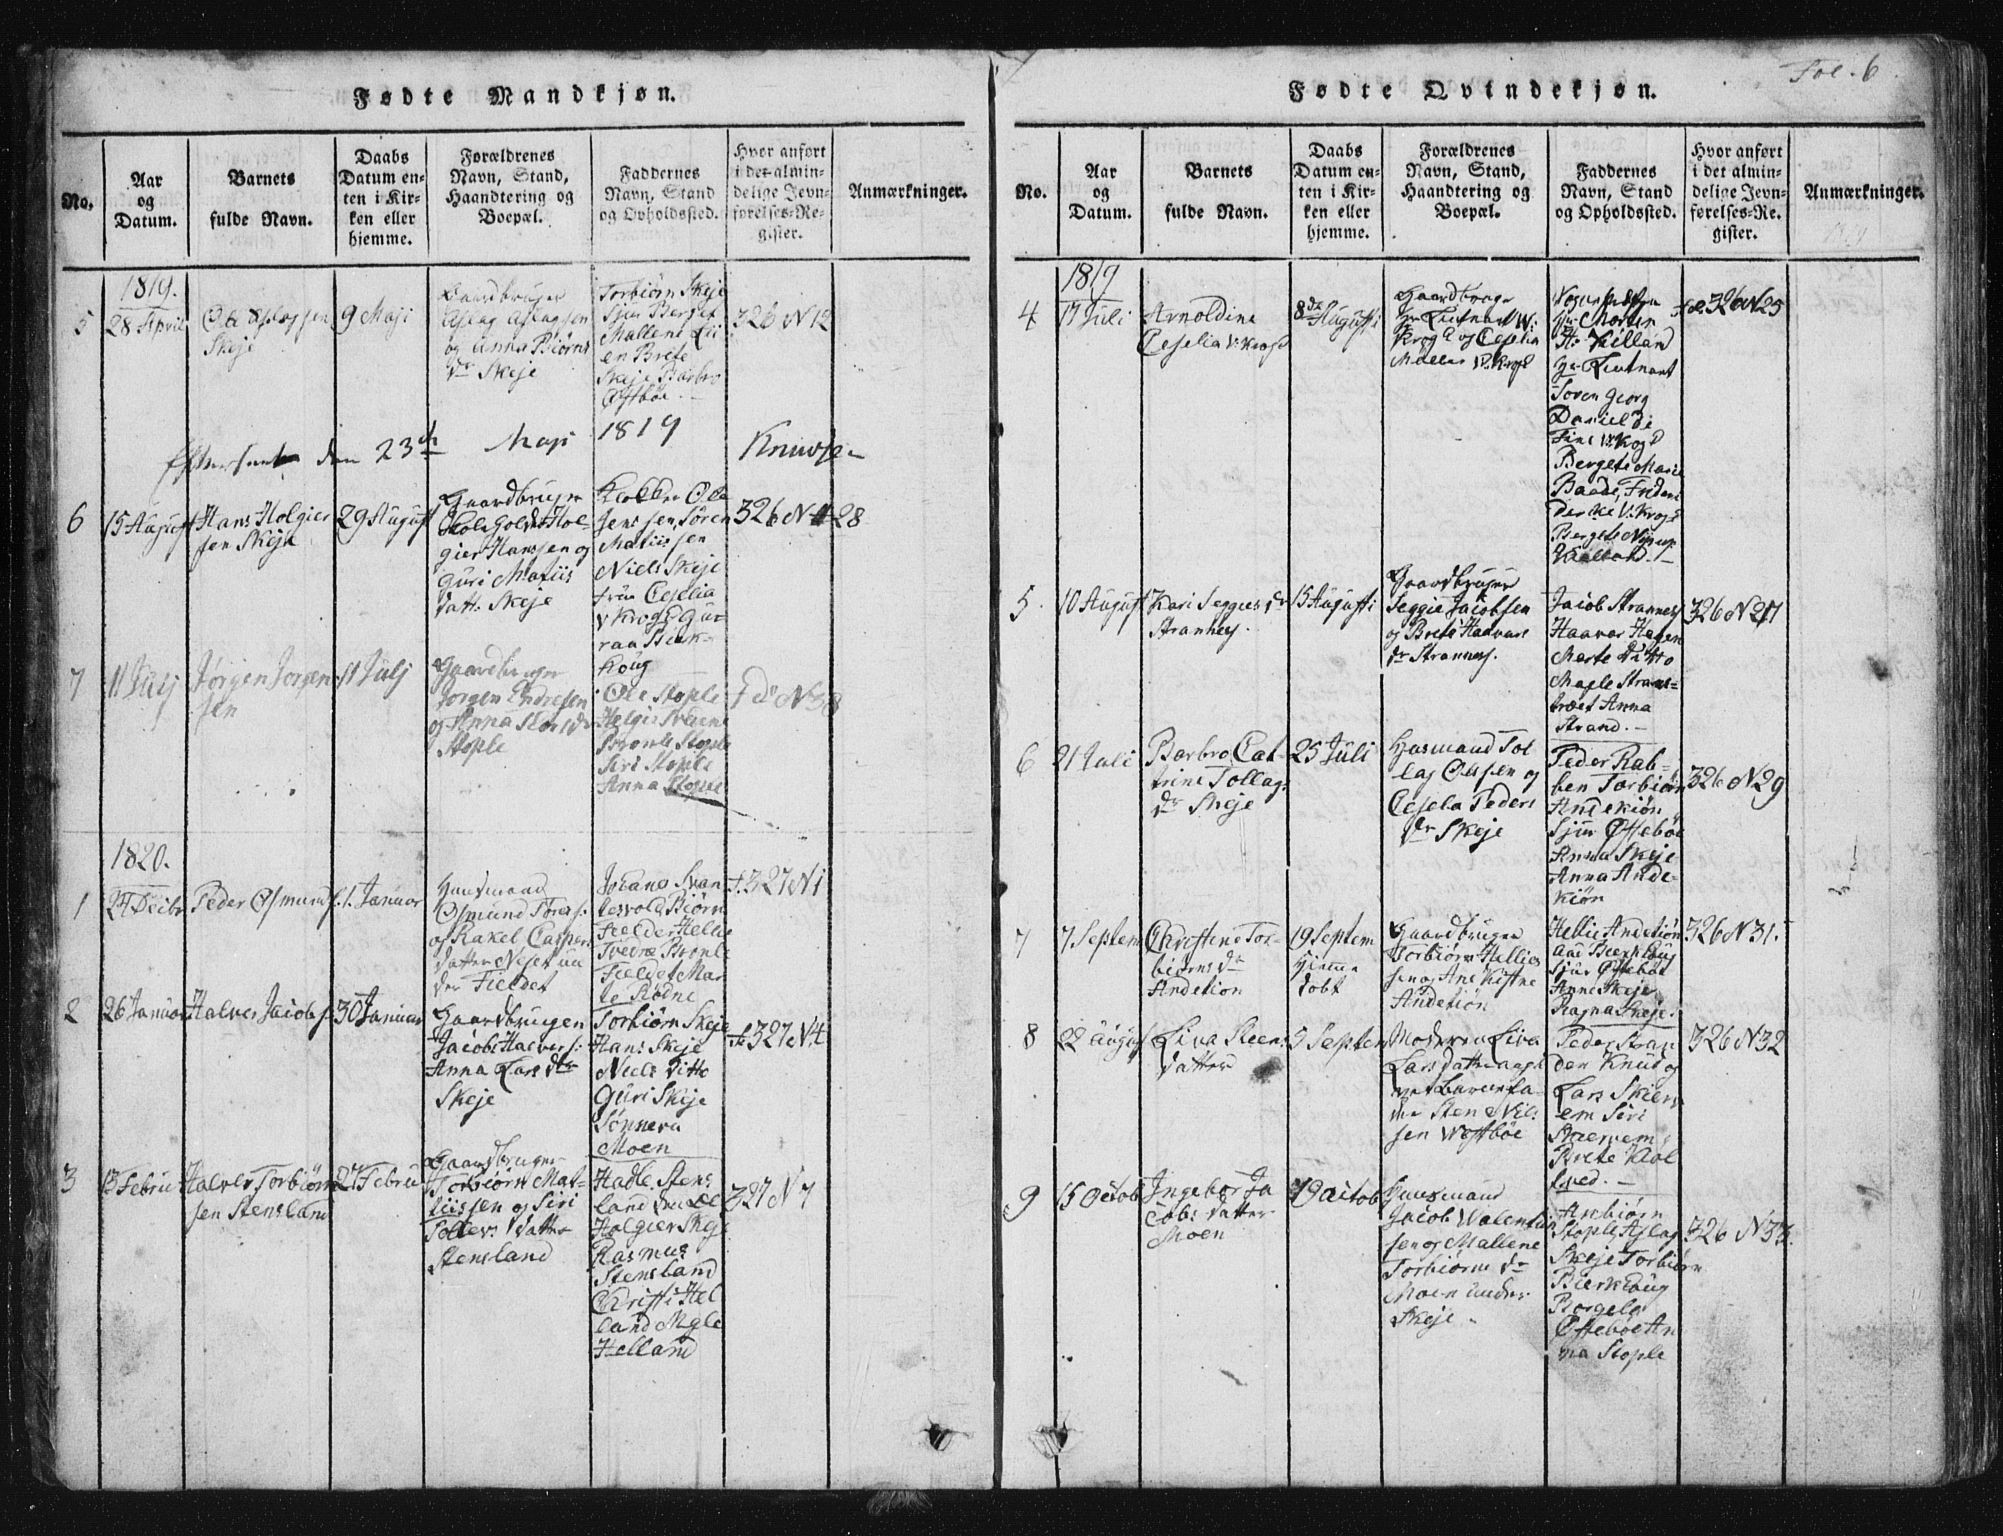 Fol. 6
Fødte Mandkjøn.
No.
Aar
og
Datum.
Barnets
fulde Navn.
Daabs
Datum en-
ten i Kir-
ken eller
hjemme.
Forældrenes
Navn, Stand,
Haandtering og
Boepæl.
Faddernes
Navn, Stand
og Opholdssted.
Hvor anført
i det almin-
delige Jevn-
førelses-Re-
gister.
Anmærkninger.
1819.
5
28 April
Ole Aslagsen
Skeje
9 Maji
Gaardbruger
Aslag Aslagsen
og Anna Biørns
dr Skeje
Torbiørn Skeje
Sjur Berget
Mallene Lii
en Brete
Skeje Barbro
Østbøe
326 N 12
Efterseet den 23de Maji 1819 Knudsen
6
15 August
Hans Holgier
sen Skeje
29 August
Gaardbruger
Hol-
gier Hanssen og
Guri Matiis
datt. Skeje
Klokker Ole
Jenssen, Søren
Matiissen
Niels Skeje
fru Ceselia
v Krog
raa Bierk-
houg
326 N 28
7
11 Julj
Jørgen Jørgen
sen
11 Julj
Gaardbruger
Jørgen Endresen
og Anna
Stople
Ole Stople
Helgie
Bronle Stople
Siri Stople
Anna Stople
N 38
1820.
1
24 Decbr
Peder Osmunds.
1. Januar
Huusmand
Osmund Tores:
og Rakel Caspers
datter Neset un
der Fieldet
Johanes Svan
tesvold Biørn
Fieldet Hellie
Bronle
Fieldet Mar
te Rødne
f. 327 N 1
2
26 Januar
Halver Jacobs.
30 Januar
Gaardbrugen
Jacob Halvers:
Anna Larsdtr
Skeje
Torbiørn Skeje
Hans Skeje
Niels ditto
Guri Skeje
Sønneva
Moen
327 N 4
3
13 Febru
Halver Torbiørn
sen Stensland
27 Febru
Gaardbruger
Torbiørn Mat-
tiissen og Siri
Tollevs datter
Stensland
Hadle Stens
land
Holgier Skeje
Rasmus
Stensland
Christi Hel
land Magle
Helland
327 N 7
Fødte Qvindekjøn.
No.
Aar
og
Datum.
Barnets
fulde Navn.
Daabs
Datum en-
ten i Kir-
ken eller
hjemme.
Forældrenes
Navn, Stand,
Haandtering og
Boepæl.
Faddernes
Navn, Stand
og Opholdssted.
Hvor anført
i det almin-
delige Jevn-
førelses-Re-
gister.
Anmærkninger.
1819
4
17 Juli
Arnoldine
Ceselia v: Krogh
8de Augusti
Gaardbruger
Hr Lieutnant W:
Krogh og Ceselia
Møller v. Krogh
Hr Morten
H: Kielland
Hr Lieutnant
Søren Georg
Daniel de
Fine v: Krogh
Bergete Marie
Baade, Frideri
v: Krogh
Bergete Nyrup
Kielland.
326 N 25
5.
10 August
Kari Seggies dr
Strannes.
15 August:
Gaardbruger
Seggie Jacobsen
og Brete Haavars
dr Strannes.
Jacob Strannes
Haavar Hagen
Marte ditto
Magle Strans-
træet Anna
Strand.
326 N 27
6
21 Juli
Barbro Cat-
trine Tollags
dr Skeje
25 Juli
Husmand Tol
lag Olssen og
Ceselia Peders
dr Skeje
Peder Rab-
ben Torbiørn
Andekiøn
Sjur Østebøe
Anna Skeje
Anna Ande-
kiøn
326 N 29
7
7 Septem
Christene Tor-
biørns dr
Andekion
19 Septem
Hjemme
døbt
Gaardbruger
Torbiørn Hellies
sen og Ane Kistine
Andekiøn
Hellie Andekiøn
Aae Bierkhoug
Sjur Østebøe
Anne Skeje
Ragna Skeje.
326 N 31.
8
22 August
Liva Steens
datter
5 Septem
Moderen Liva
Lars datter
Barnefa-
der Sten Niel
sen Westbøe
Peder Stran
den Knud og
Lars Skierv
em Siri
Skiervem,
Brete Kol
tved.
326 N 32
9
15 Octob
Ingebor Ja
cobs datter
Moen
19 Octob
Huusmand
Jacob Walentin
sen og Mallene
Torbiørns dr
Moen under
Skeje.
Anbiørn
Stople Aslag
Skeje Torbiørn
Bierkhoug
Borgela
Østebøe An
na Stople
326 N 33.